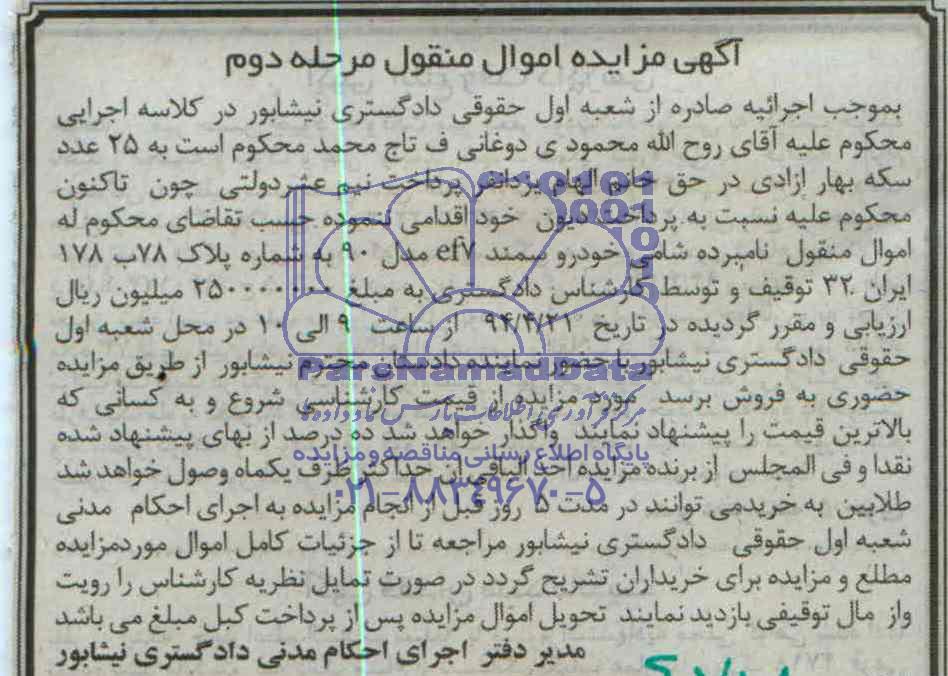 آگهی مزایده اموال منقول مرحله دوم
بموجب اجرائیه صادره از شعبه اول حقوقی دادگستری نیشابور در کلاسه اجرایی
محکوم علیه آقای روح الله محمود ی دوغانی ف تاج محمد محکوم است به ۲۵ عدد
سکه بهار ازادی در حق خانم الهام یزدانفر پرداخت نیم عشردولتی چون تاکنون
محکوم علیه نسبت به پرداخت دیون خود اقدامی ننموده حسب تقاضای محکوم له
اموال منقول نامبرده شامی خودرو سمند ef۷ مدل ۹۰ به شماره پلاک ۷۸ب ۱۷۸
ایران ۳۲ توقیف و توسط کارشناس دادگستری به مبلغ ۲۵۰۰۰۰۰۰۰ میلیون ریال
ارزیابی و مقرر گردیده در تاریخ ۹۴/۴/۲۱ از ساعت ۹ الی ۱۰ در محل شعبه اول
حقوقی دادگستری نیشابور با حضور نماینده دادستان محترم نیشابور از طریق مزایده
حضوری به فروش برسد مورد مزایده از قیمت کارشناسی شروع و به کسانی که
بالاترین قیمت را پیشنهاد نمایند واگذار خواهد شد ده درصد از بهای پیشنهاد شده
نقدا و فی المجلس از برنده مزایده اخذ الباقی ان حداکثر ظرف یکماه وصول خواهد شد
طلابین به خریدمی توانند در مدت ۵ روز قبل از انجام مزایده به اجرای احکام مدنی
شعبه اول حقوقی دادگستری نیشابور مراجعه تا از جزئیات کامل اموال موردمزایده
مطلع و مزایده برای خریداران تشریح گردد در صورت تمایل نظریه کارشناس را رویت
واز مال توقیفی بازدید نمایند تحویل اموال مزایده پس از پرداخت کبل مبلغ می باشد
مدیر دفتر اجرای احکام مدنی دادگستری نیشابور
ParsNamadData
مرکز فرآوری اطلاعات پارس نماد داده ها
پایگاه اطلاع رسانی مناقصه و مزایده
۰۲۱-۸۸۳۴۹۶۷۰-۵